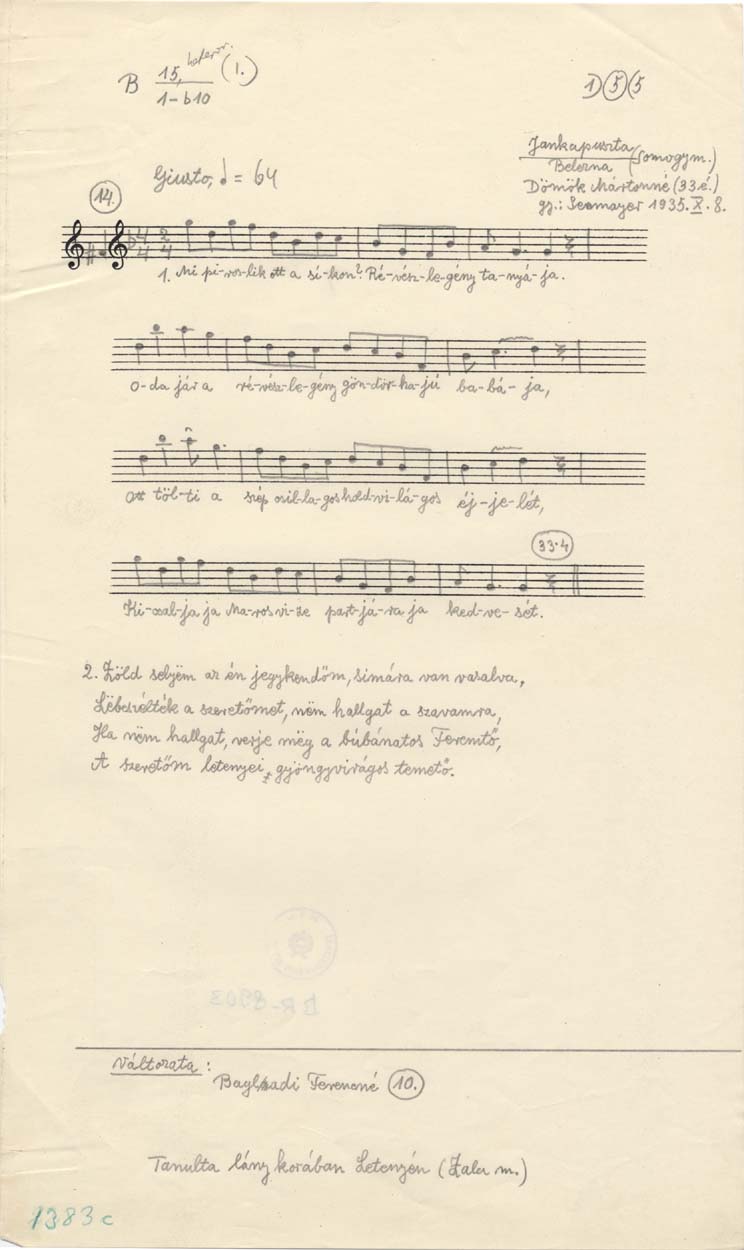 B 15, heterom. (1.)
1-b10
1) 5 (5
Jankapuszta
Belezna (Somogym.)
Dömök Mártonné (33é.)
gy.: Seemayer 1935. X. 8.
Giusto, = 64
14.
4 4 2 4
1. Mi pi-ros-lik ott a sí-kon? Ré-vész-le-gény ta-nyá-ja.
O-da jár a ré-vész-le-gény gön-dör-ha-jú ba-bá-ja,
Ott töl-ti a szép csil-la-gos hold-vi-lá-gos éj-je-lét,
33.4
Ki-csal-ja ja Ma-ros vi-ze part-já-ra ja ked-ve-sét.
2. Zöld selyëm az én jegykendőm, simára van vasalva,
Lëbeszélték a szeretőmet, nëm hallgat a szavamra,
Ha nëm hallgat, verje mëg a búbánatos Teremtő,
A szeretőm letenyei, gyöngyvirágos temető.
Változata:
Bagladi Ferencné 10.
Tanulta lány korában Letenyén (Zala m.)
1383c